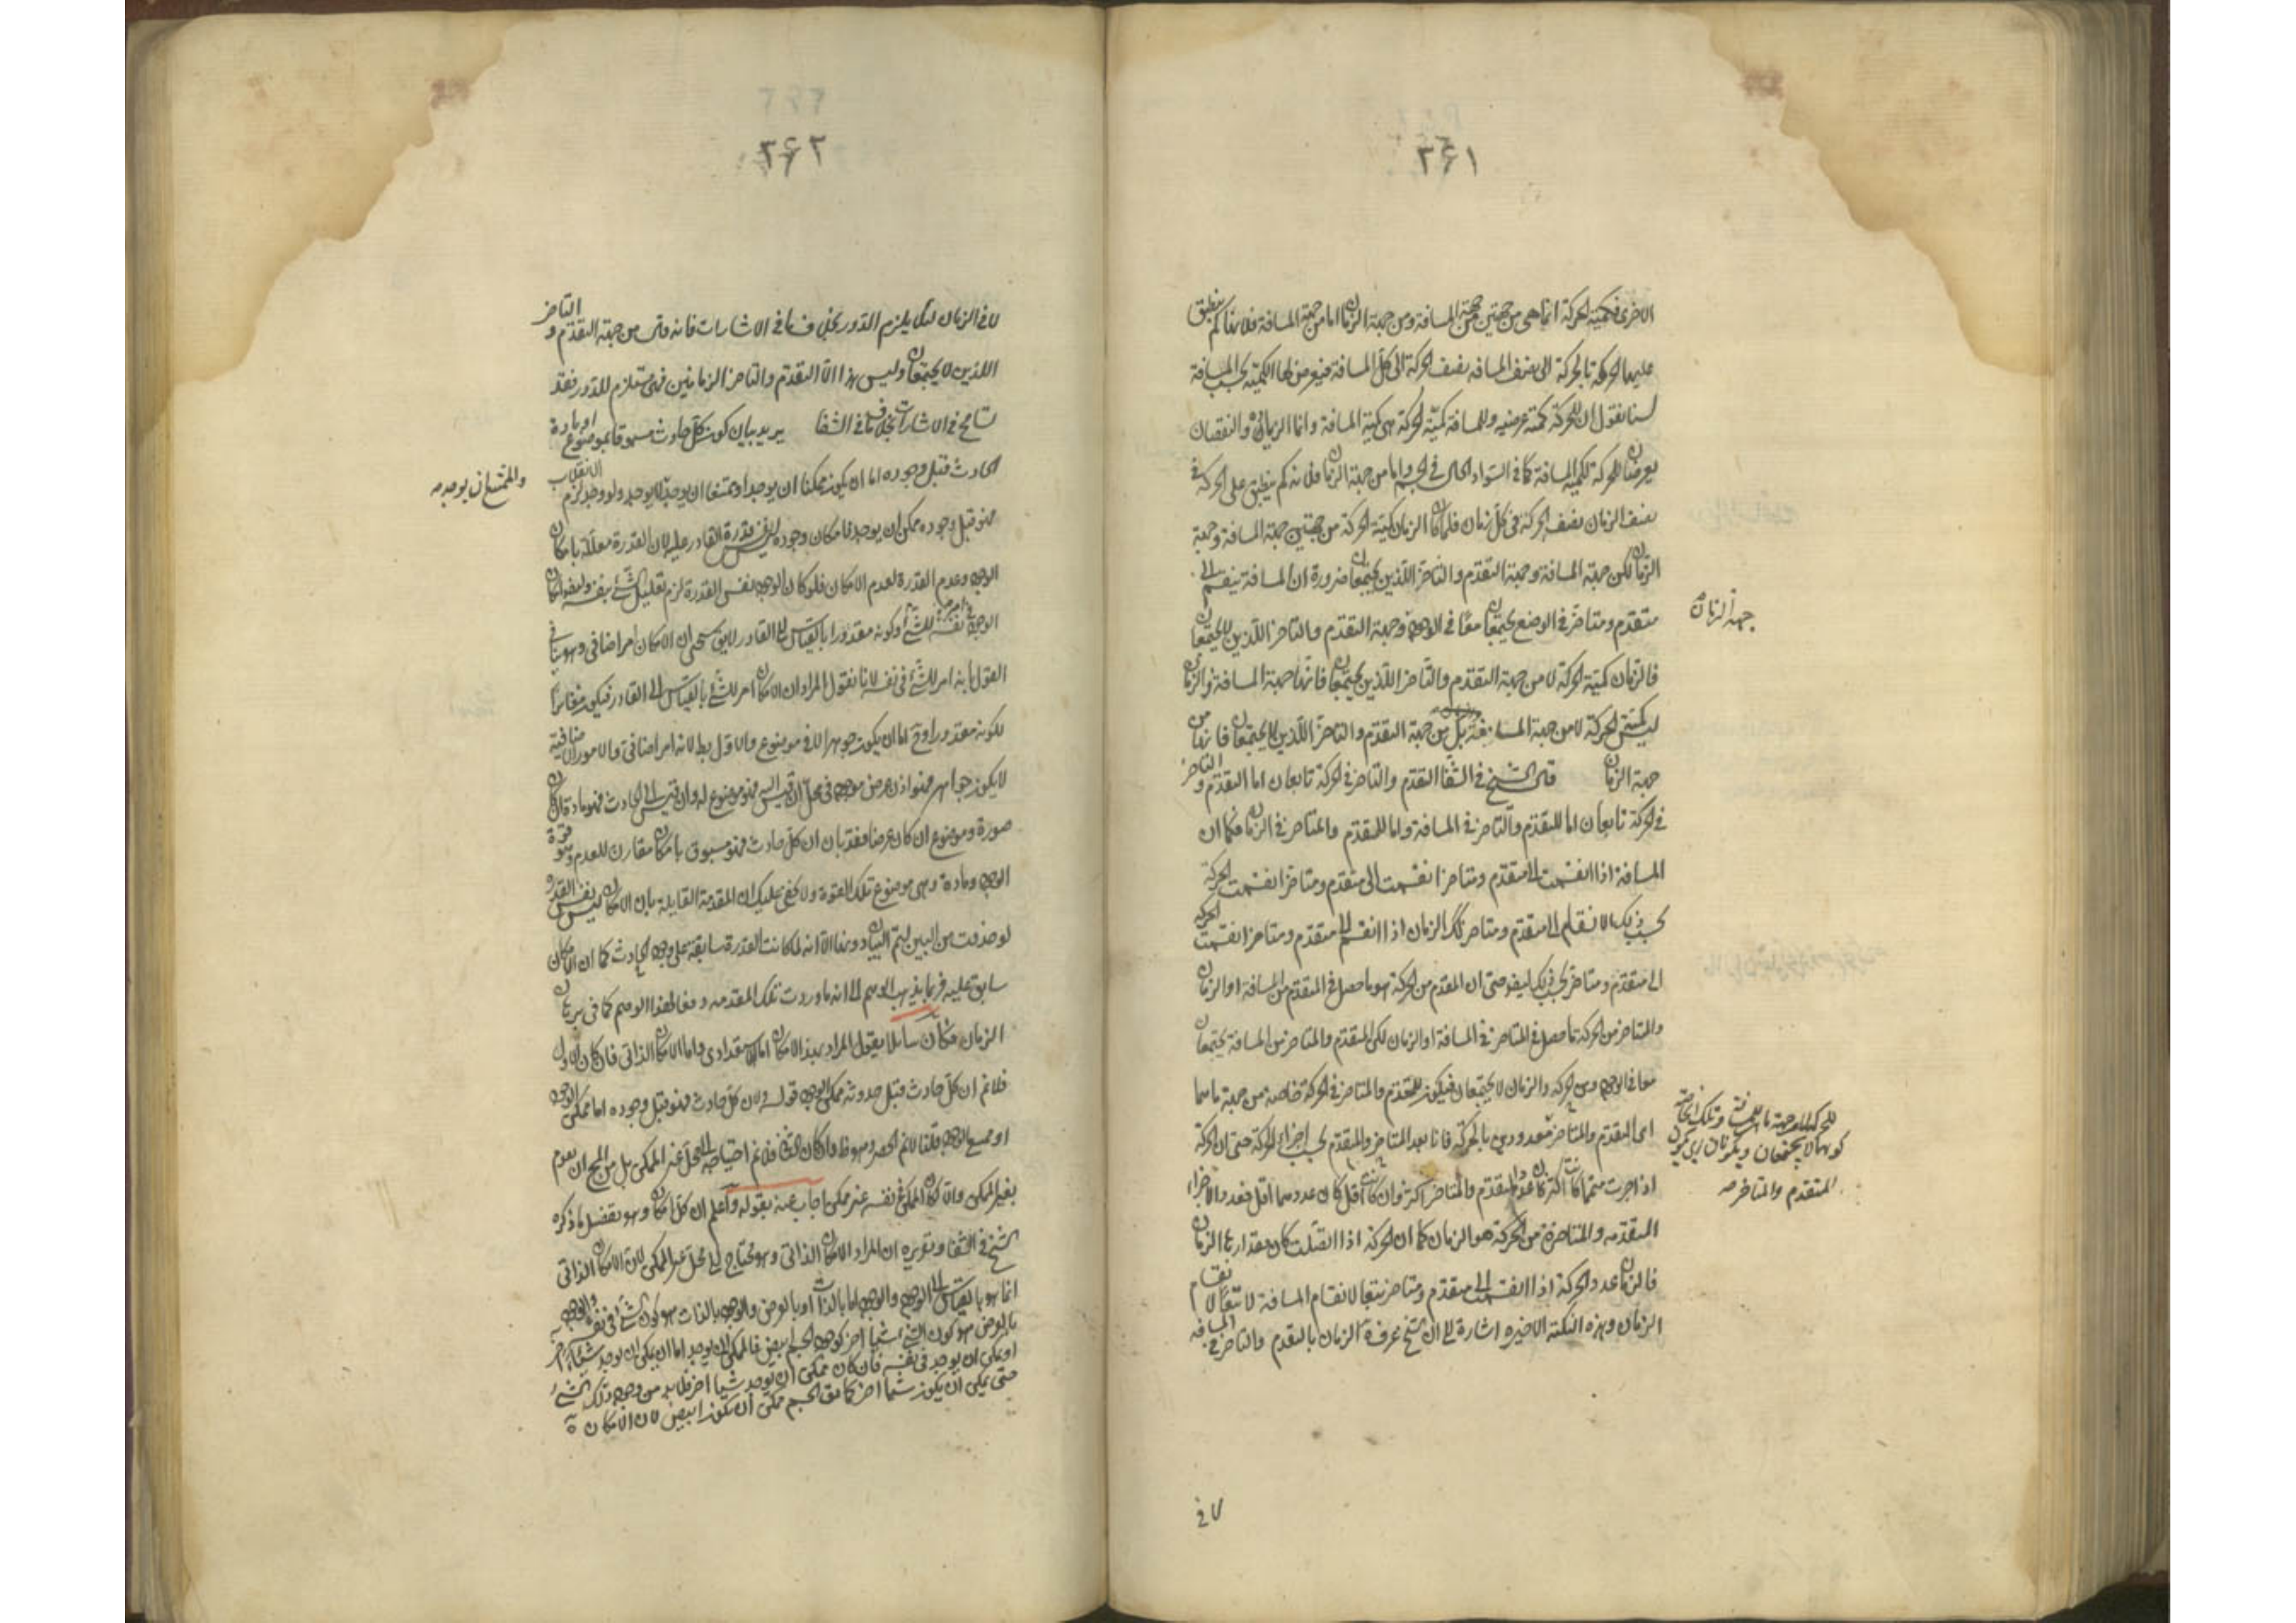 ٢٤١
الاخرى فكمية الحركة انما هي من جهتين من جهة المسافة ومن جهة الزمان اما من جهة المسافة فلانها كم ينطبق
عليها الحركة فالحركة الى نصف المسافة نصف الحركة الى كل المسافة فيعرض لها الكمية بحسب المسافة
لسنا نقول ان للحركة كمية عرضية وللمسافة كمية الحركة هي كمية المسافة وانما الزيادة والنقصان
يعرضان للحركة لكمية المسافة كما في السواد الحال في الجسم واما من جهة الزمان فلانه كم ينطبق على الحركة في
نصف الزمان نصف الحركة في كل زمان فلما كان الزمان كمية الحركة من جهتين جهة المسافة وجهة
الزمان لكن جهة المسافة وجهة التقدم والتاخر اللذين يجتمعان ضرورة ان المسافة ينقسم الى
جهة الزمان
متقدم ومتاخر في الوضع يجتمعان معا في الوجود وجهة التقدم والتاخر اللذين لا يجتمعان
فالزمان كمية الحركة لا من جهة التقدم والتاخر اللذين يجتمعان فانها جهة المسافة والزمان
ليس كمية الحركة لا من جهة المسافة بل من جهة التقدم والتاخر اللذين لا يجتمعان فانها من
جهة الزمان قال الشيخ في الشفا التقدم والتاخر في الحركة تابعان اما التقدم والتاخر
في الحركة تابعان اما للتقدم والتاخر في المسافة واما للمتقدم والمتاخر في الزمان فكما ان
المسافة اذا انقسمت الى متقدم ومتاخر انقسمت الى متقدم ومتاخر انقسمت الحركة
بحسب ذلك الانقسام الى متقدم ومتاخر كذلك الزمان اذا انقسم الى متقدم ومتاخر انقسمت الحركة
الى متقدم ومتاخر بحسب ذلك ايضا حتى ان المقدم من الحركة هو ما حصل في المتقدم من المسافة او الزمان
والمتاخر من الحركة ما حصل في المتاخر في المسافة او الزمان لكن المتقدم والمتاخر من المسافة يجتمعان
معا في الوجود ومن الحركة والزمان لا يجتمعان فيكون للمتقدم والمتاخر في الحركة خاصة من جهة ما هما
للحركة لا من جهة ما هما للمسافة وتلك الخاصة
كونهما لا يجتمعان ويكونان اي يكون
المتقدم والمتاخر صح
اي المتقدم والمتاخر معدودين بالحركة فانا نعد المتاخر والمتقدم بحسب اجزاء الحركة حتى ان الحركة
اذا جزيت متى ما كانت اكثر كان عدد المتقدم والمتاخر اكثر وان كانت اقل كان عددهما اقل فعدد الاجزاء
المتقدمه والمتاخرة من الحركة هو الزمان كما ان الحركة اذا اتصلت كان مقدارها الزمان
فالزمان عدد الحركة اذا انقسمت الى متقدم ومتاخر تبعا لانقسام المسافة لا تبعا لانقسام
الزمان وهذه النكتة الاخيره اشارة الى ان الشيخ عرف الزمان بالتقدم والتاخر في المسافه
لا في
٢٤٢
لا في الزمان لئلا يلزم الدور بخلاف ما في الاشارات فانه قال من جهة التقدم والتاخر
اللذين لا يجتمعان وليس هذا الا التقدم والتاخر الزمانيين فهو مستلزم للدور فقد
تسامح في الاشارات بخلاف ما في الشفا يريد بيان كون كل حادث مسبوقا بموضوع او مادة
الحادث قبل وجوده اما ان يكون ممكنا ان يوجد او ممتنعا ان يوجد لا يوجد ولو وجد لزم الانقلاب
والممتنع ان يوجد صح
فهو قبل وجوده ممكن ان يوجد فامكان وجوده ليس نفس قدرة القادر عليه لان القدرة معللة بامكان
الوجود وعدم القدرة لعدم الامكان فلو كان الوجود نفس القدرة لزم تعليل الشيء بنفسه
الوجود امر في نفسه للشيء وكونه مقدورا بالقياس الى القادر لا يق سيجيء ان الامكان امر اضافي وهو ينافي
القول بانه امر للشيء في نفسه لانا نقول المراد ان الامكان امر للشيء لا بالقياس الى القادر فيكون مغايرا
لكونه مقدورا وح اما ان يكون جوهرا لا في موضوع والاول بط لانه امر اضافي والامور الاضافية
لا يكون جواهر فهو اذن عرض موجود في محل ان قيس اليه فهو موضوع له وان قيس الى الحادث فهو مادة ان كان
صورة وموضوع ان كان عرضا فقد بان ان كل حادث فهو مسبوق بامكان مقارن للعدم وهو قوة
الوجود ومادة وهي موضوع تلك القوة ولا يخفى عليك ان المقدمة القايلة بان الامكان ليس نفس القدرة
لو حذفت من البين ليتم البيان دونها الا انه لما كانت القدرة سابقة على وجود الحادث كما ان الامكان
سابق عليه فربما يذهب الوهم الى انه ما وردت تلك المقدمه دفعا لهذا الوهم كما في برهان
الزمان فكأن سائلا يقول المراد بهذا الامكان اما الاستعدادي واما الامكان الذاتي فان كان الاول
فلانم ان كل حادث قبل حدوثه ممكن الوجود قوله ولان كل حادث فهو قبل وجوده اما ممكن الوجود
او ممتنع الوجود قلنا لانم الحصر وهو ظ وان كان الثاني فلانم احتياجه الى محل غير الممكن بل من المحال ان يقوم
بغير الممكن والا كان الممكن في نفسه غير ممكن اجاب عنه بقوله واعلم ان كل امكان وهو بفضل ما ذكره
الشيخ في الشفا وتقريره ان المراد الامكان الذاتي وهو محتاج الى محل غير الممكن لان الامكان الذاتي
انما هو بالقياس الى الوجود والوجود اما بالذات او بالعرض والوجود بالذات هو كون الشيء في نفسه والوجود
بالعرض هو كون الشيء شيئا اخر كوجود الجسم ابيض فالممكن ان يوجد اما ان يمكن ان يوجد شيئا اخر
او يمكن ان يوجد في نفسه فان كان ممكن ان يوجد شيئا اخر فلابد من وجود ذلك الشيء
حتى يمكن ان يكون شيئا اخر كما يق الجسم ممكن ان يكون ابيض لان الامكان